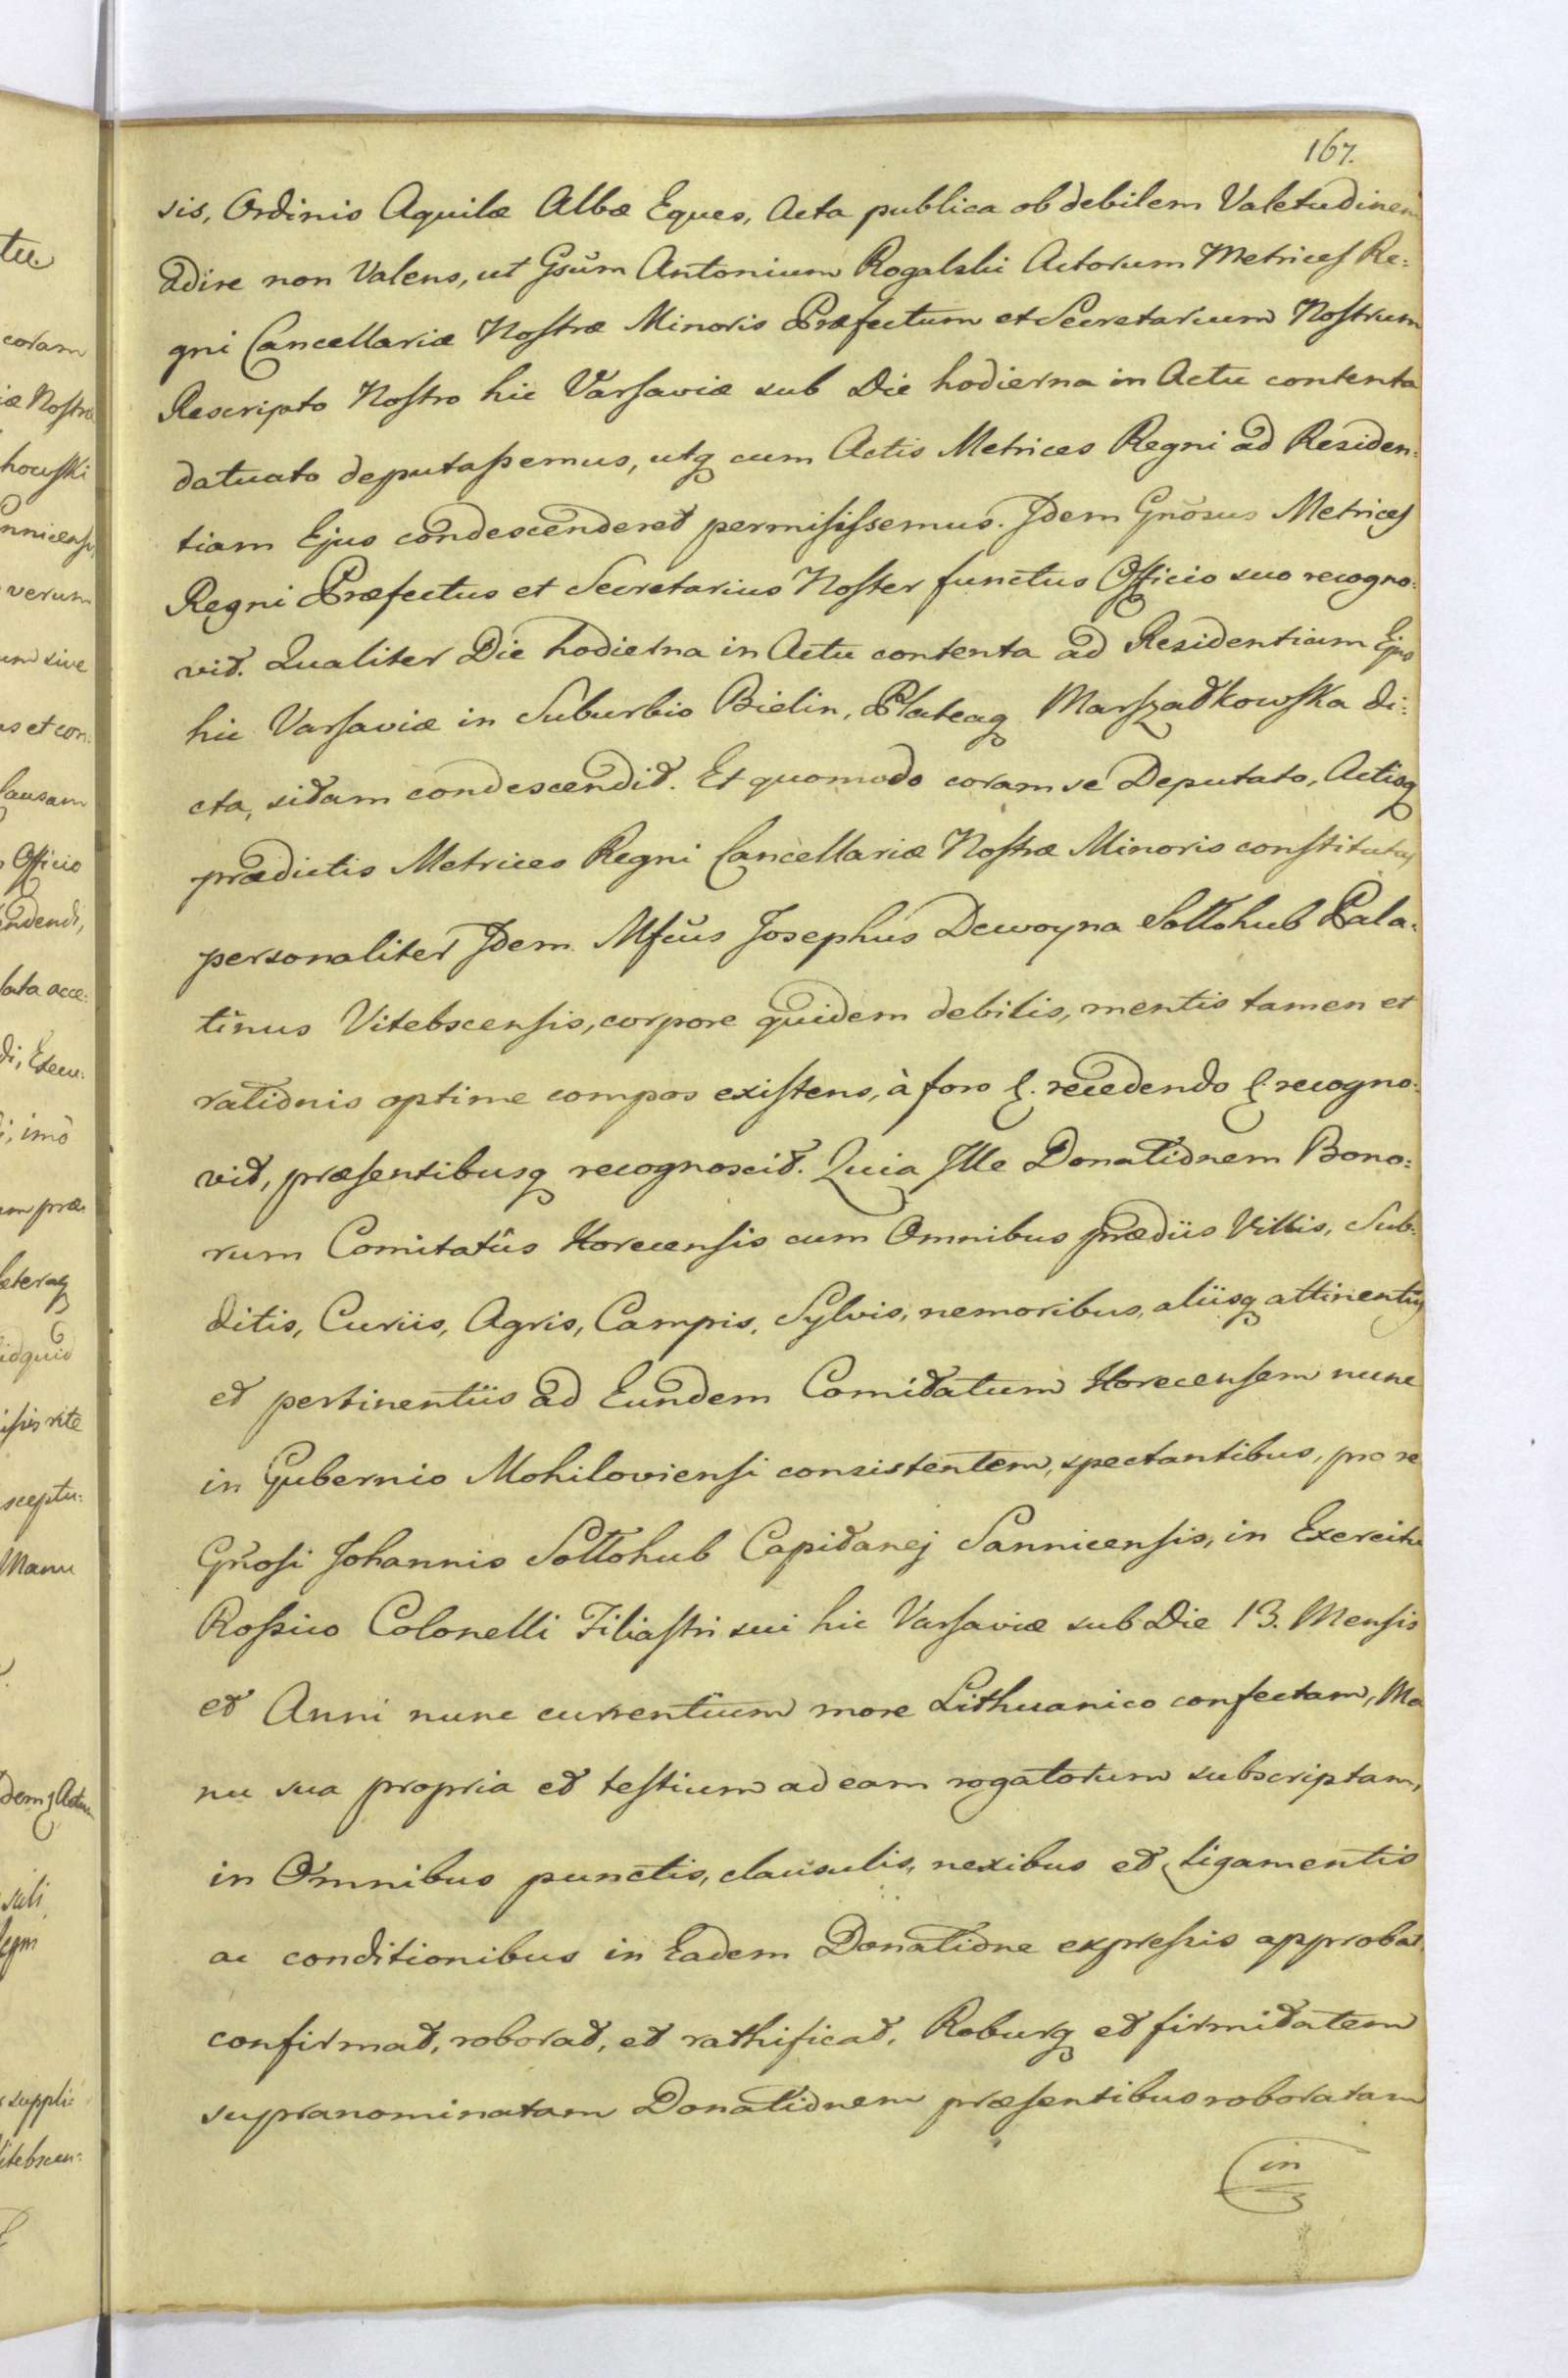 167.
sis, Ordinis Aquilæ Albæ Eques, Acta publica ob debilem Valetudinem
adire non Valens, ut Gsūm Antonium Rogalski Actorum Metrices Re:
gni Cancellariæ Nostræ Minoris Præfectum et Secretarium Nostrum
Rescripto Nostro hic Varsaviæ sub Die hodierna in Actu contenta
datuato deputassemus, utq cum Actis Metrices Regni ad Residen:
tiam Ejus condescenderet permisissemus. Idem Gnōsus Metrices
Regni Præfectus et Secretarius Noster functus Officio suo recogno:
vit. Qualiter Die hodierna in Actu contenta ad Residentiam Ejus
hic Varsaviæ in Suburbio Bielin, Plateaq Marszałkowska di:
cta, sitam condescendit. Et quomodo coram se Deputato, Actisq
prædictis Metrices Regni Cancellariæ Nostræ Minoris constitutus
personaliter Idem Mfcus Josephus Dewoyna Sołłohub Pala:
tinus Vitebscensis, corpore quidem debilis, mentis tamen et
rationis optime compos existens, à foro &. recedendo &. recogno:
vit, præsentibusq recognoscit. Quia Ille Donationem Bono:
rum Comitatûs Horecensis cum Omnibus prædiis Villis, Sub:
ditis, Curiis, Agris, Campis, Sylvis, nemoribus, aliisq attinentiis
et pertinentiis ad Eundem Comitatum Horecensem nunc
in Gubernio Mohiloviensi consistentem, spectantibus, pro re
Gnōsi Johannis Sołłohub Capitanej Sannicensis, in Exercitu
Rossico Colonelli Filiastri sui hic Varsaviæ sub Die 13. Mensis
et Anni nunc currentium more Lithuanico confectam, Ma
nu sua propria et testium ad eam rogatorum subscriptam,
in Omnibus punctis, clausulis, nexibus et ligamentis
ac conditionibus in Eadem Donatione expressis approbat,
confirmat, roborat, et rathificat, Roburq et firmitatem
supranominatam Donationem præsentibus roboratam
in